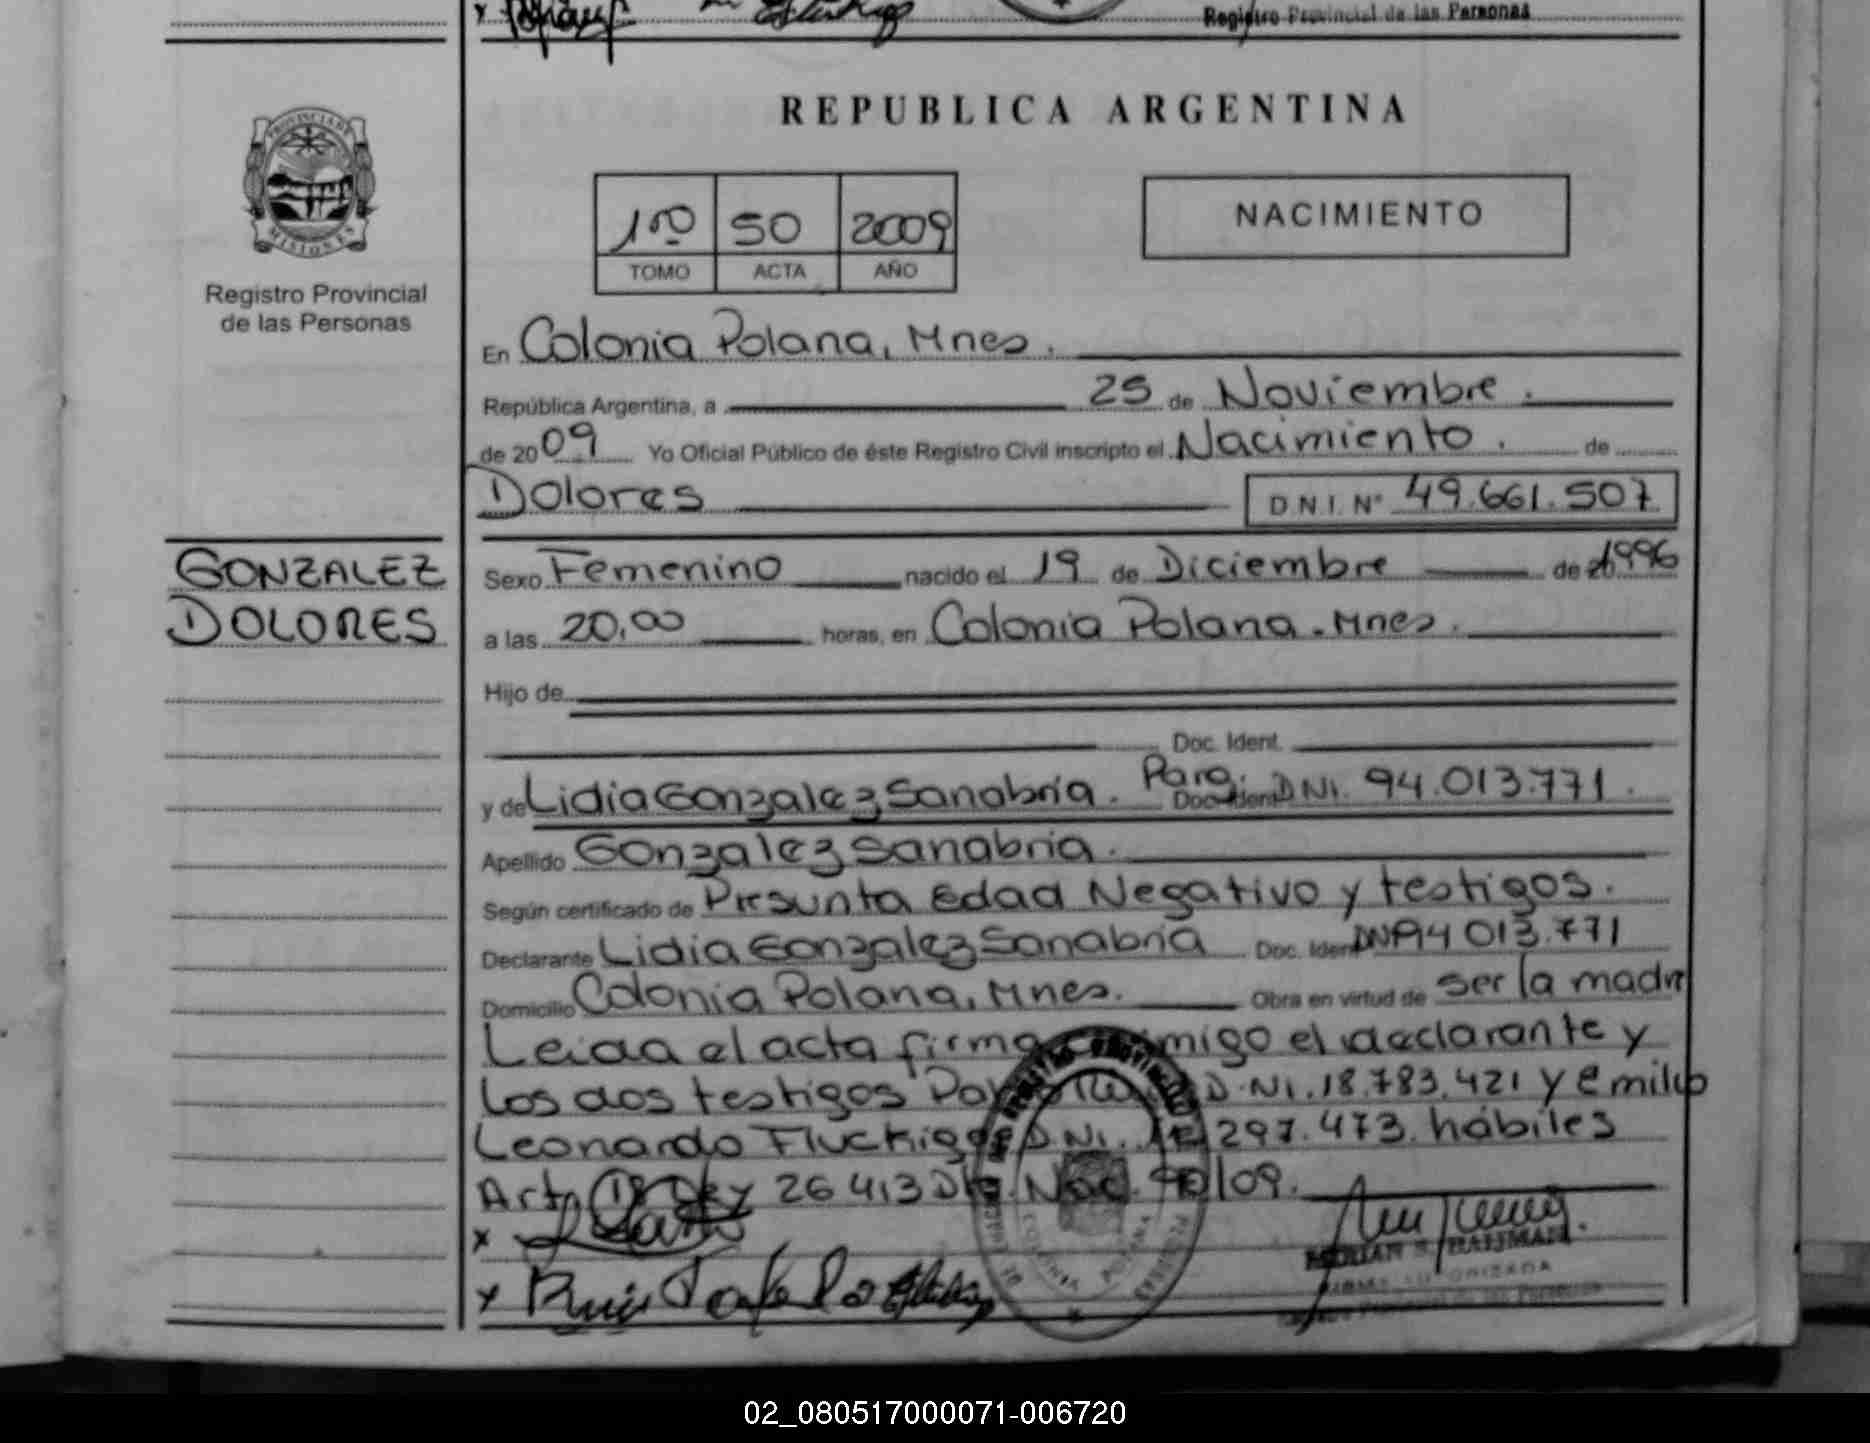 Registro Provincial de las Personas
REPUBLICA ARGENTINA
PROVINCIA DE
MISIONES
Registro Provincial
de las Personas
1ro 50 2009
TOMO ACTA AÑO
NACIMIENTO
En Colonia Polana, Mnes.
República Argentina, a 25 de Noviembre.
de 2009 Yo Oficial Público de éste Registro Civil inscripto el Nacimiento. de
Dolores D.N.I. N° 49.661.507
GONZALEZ
DOLORES
Sexo Femenino nacido el 19 de Diciembre de 1996
a las 20,00 horas, en Colonia Polana - Mnes.
Hijo de
Doc. Ident.
y de Lidia Gonzalez Sanabria. Parg. Doc. Ident. DNI. 94.013.771.
Apellido Gonzalez Sanabria.
Según certificado de Presunta Edad Negativo y testigos.
Declarante Lidia Gonzalez Sanabria Doc. Ident. DNI 94 013.771
Domicilio Colonia Polana, Mnes. Obra en virtud de ser la madre
Leida el acta firma conmigo el declarante y
los dos testigos D.NI. 18.783.421 y Emilio
Leonardo Fluckiger D.NI. 297.473. hábiles
Art. Ley 26 413 Nac. /09.
x
x Ruis
MIRIAN S. RATJMAN
FIRMA AUTORIZADA
COLONIA POLANA
02_080517000071-006720